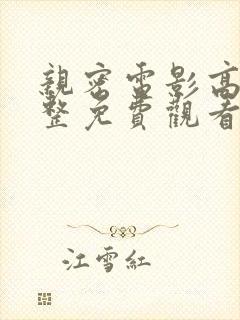 親密電影高
整免費觀看
江雪紅